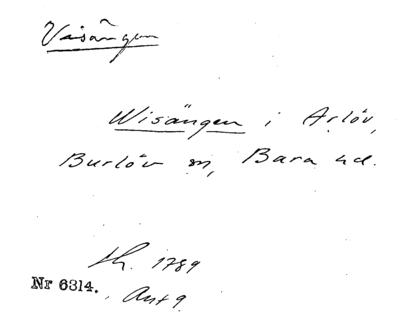 Visängen
Wisängen i Arlöv,
Burlöv sn, Bara hd.
th. 1789
Nr 6314. Ant 9